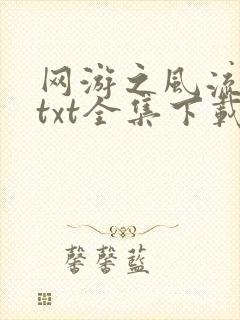 网游之风流
txt全集下載
馨馨藍